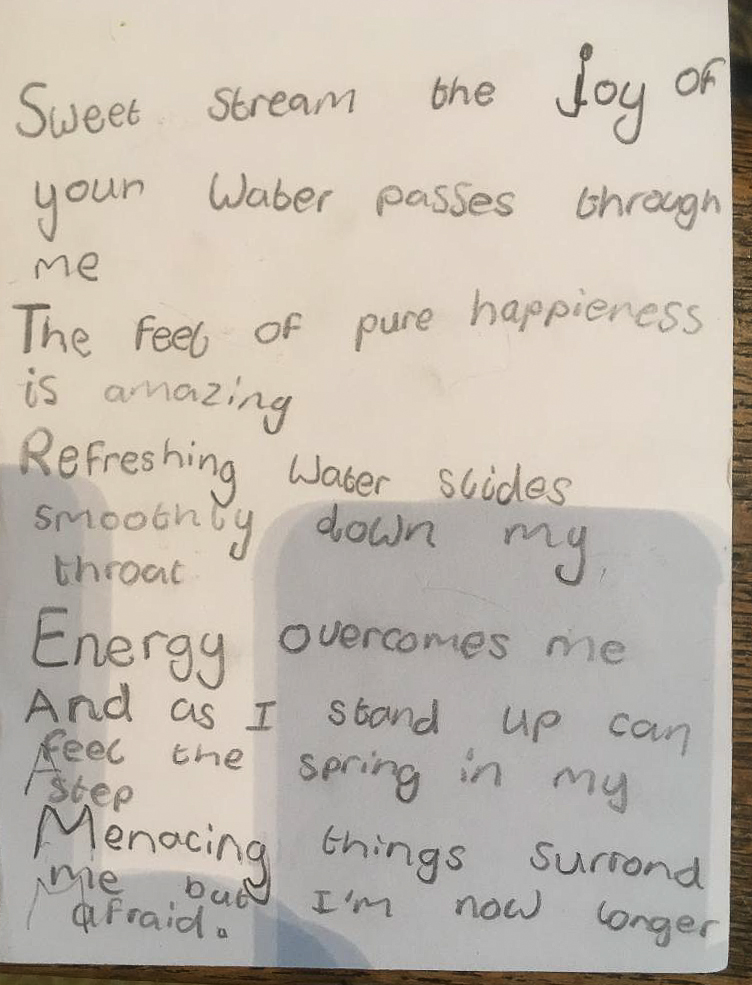 Sweet stream the Joy of
your Water passes through
me
The feel of pure happieness
is amazing
Refreshing Water slides
smoothly down my
throat
Energy overcomes me
And as I stand up can
feel the spring in my
step
Menacing things surrond
me but I'm now longer
afraid.